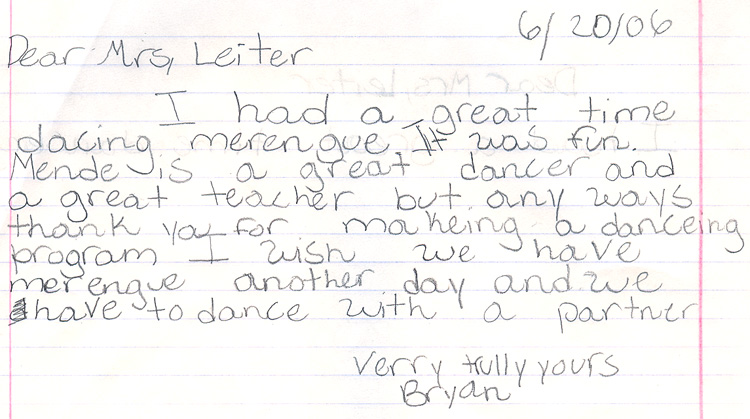 6/20/06
Dear Mrs, Leiter
I had a great time
dacing merengue. It was fun.
Mende is a great dancer and
a great teacher but any ways
thank you for makeing a danceing
program I wish we have
merengue another day and we
have to dance with a partner
Verry trully yours
Bryan